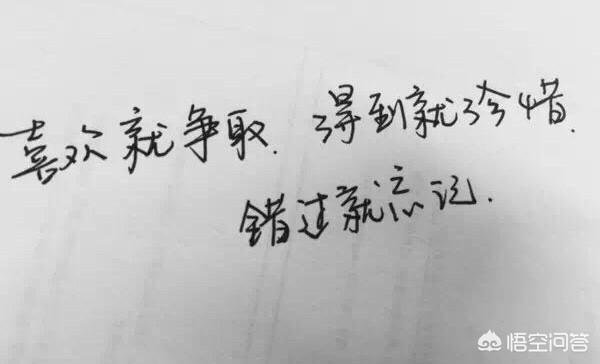 喜欢就争取.得到就珍惜.
错过就忘记.
悟空问答